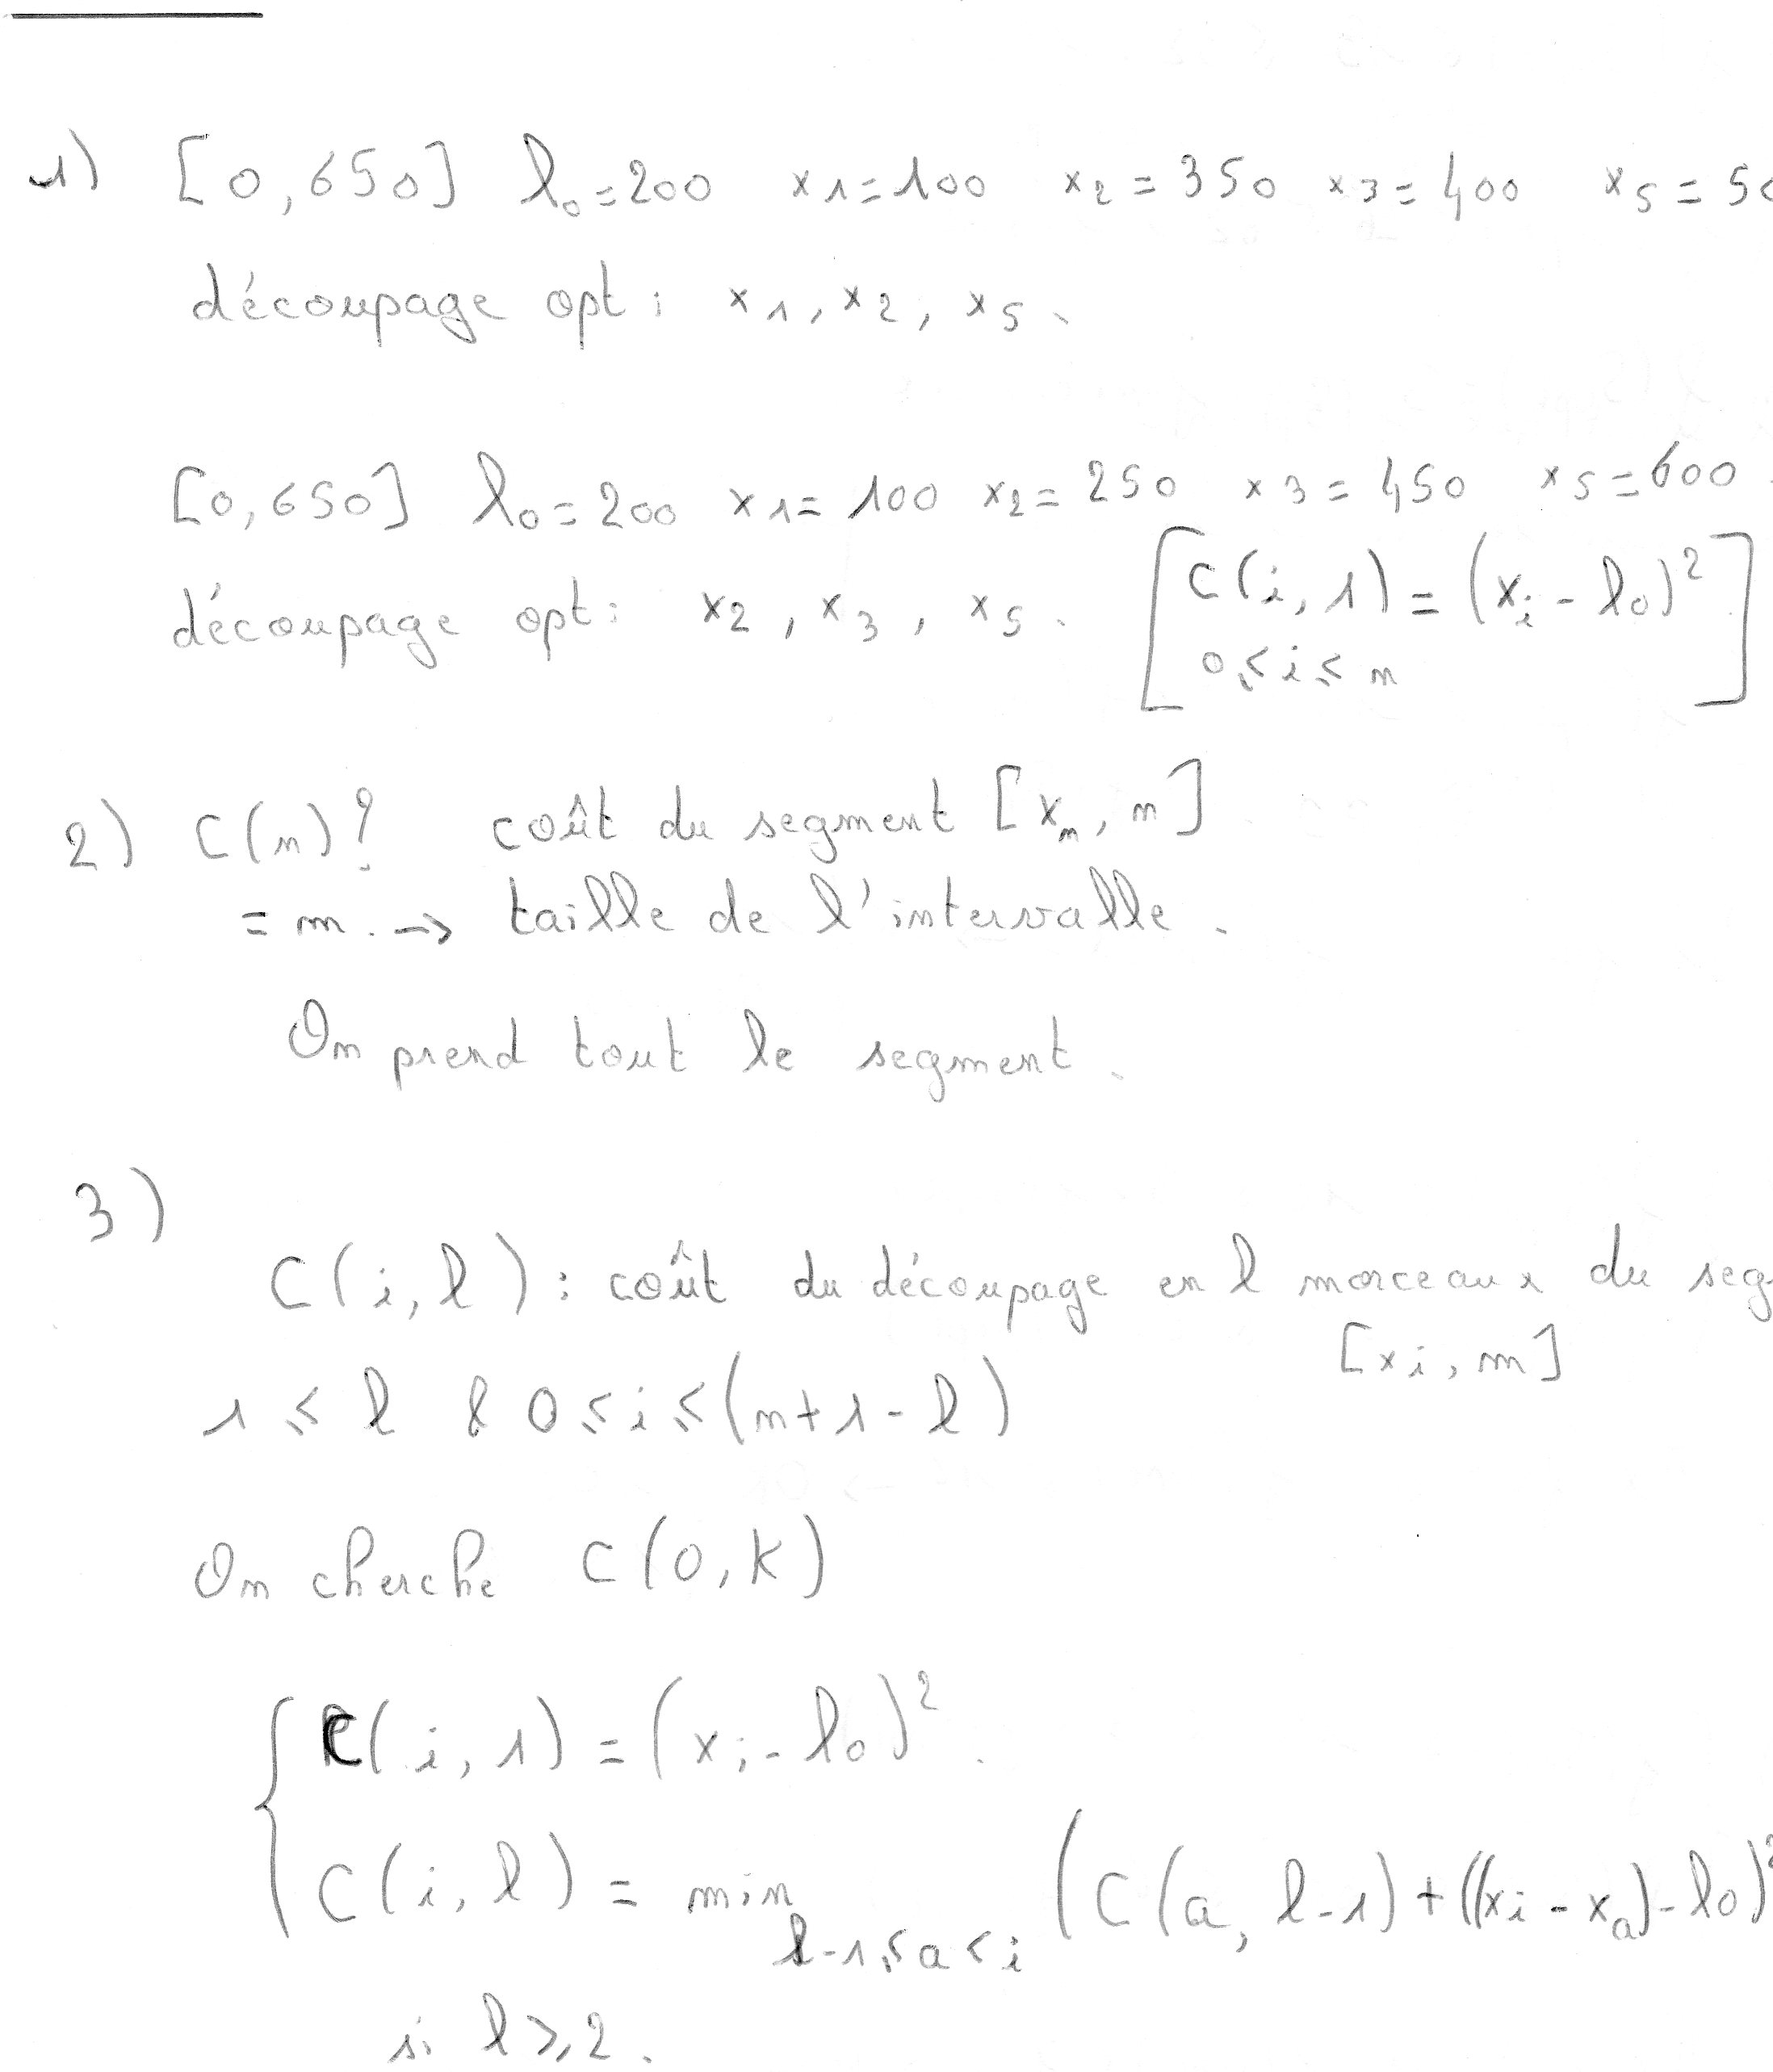 1) [0,650] l₀=200 x₁=100 x₂=350 x₃=400 x₅=50
découpage opt : x₁, x₂, x₅.
[0,650] l₀=200 x₁=100 x₂=250 x₃=450 x₅=600.
découpage opt : x₂, x₃, x₅. [C(i,1)=(xᵢ-l₀)²
0≤i≤n]
2) C(n)? coût du segment [xₙ, m]
= m. -> taille de l'intervalle.
On prend tout le segment.
3)
C(i,l): coût du découpage en l morceaux du seg
[xi, m]
1 ≤ l & 0≤i≤(n+1-l)
On cherche C(0,k)
{ C(i,1)=(xᵢ-l₀)².
C(i,l) = min l-1≤a<i (C(a, l-1)+((xi-xₐ)-l₀)²
si l≥2.